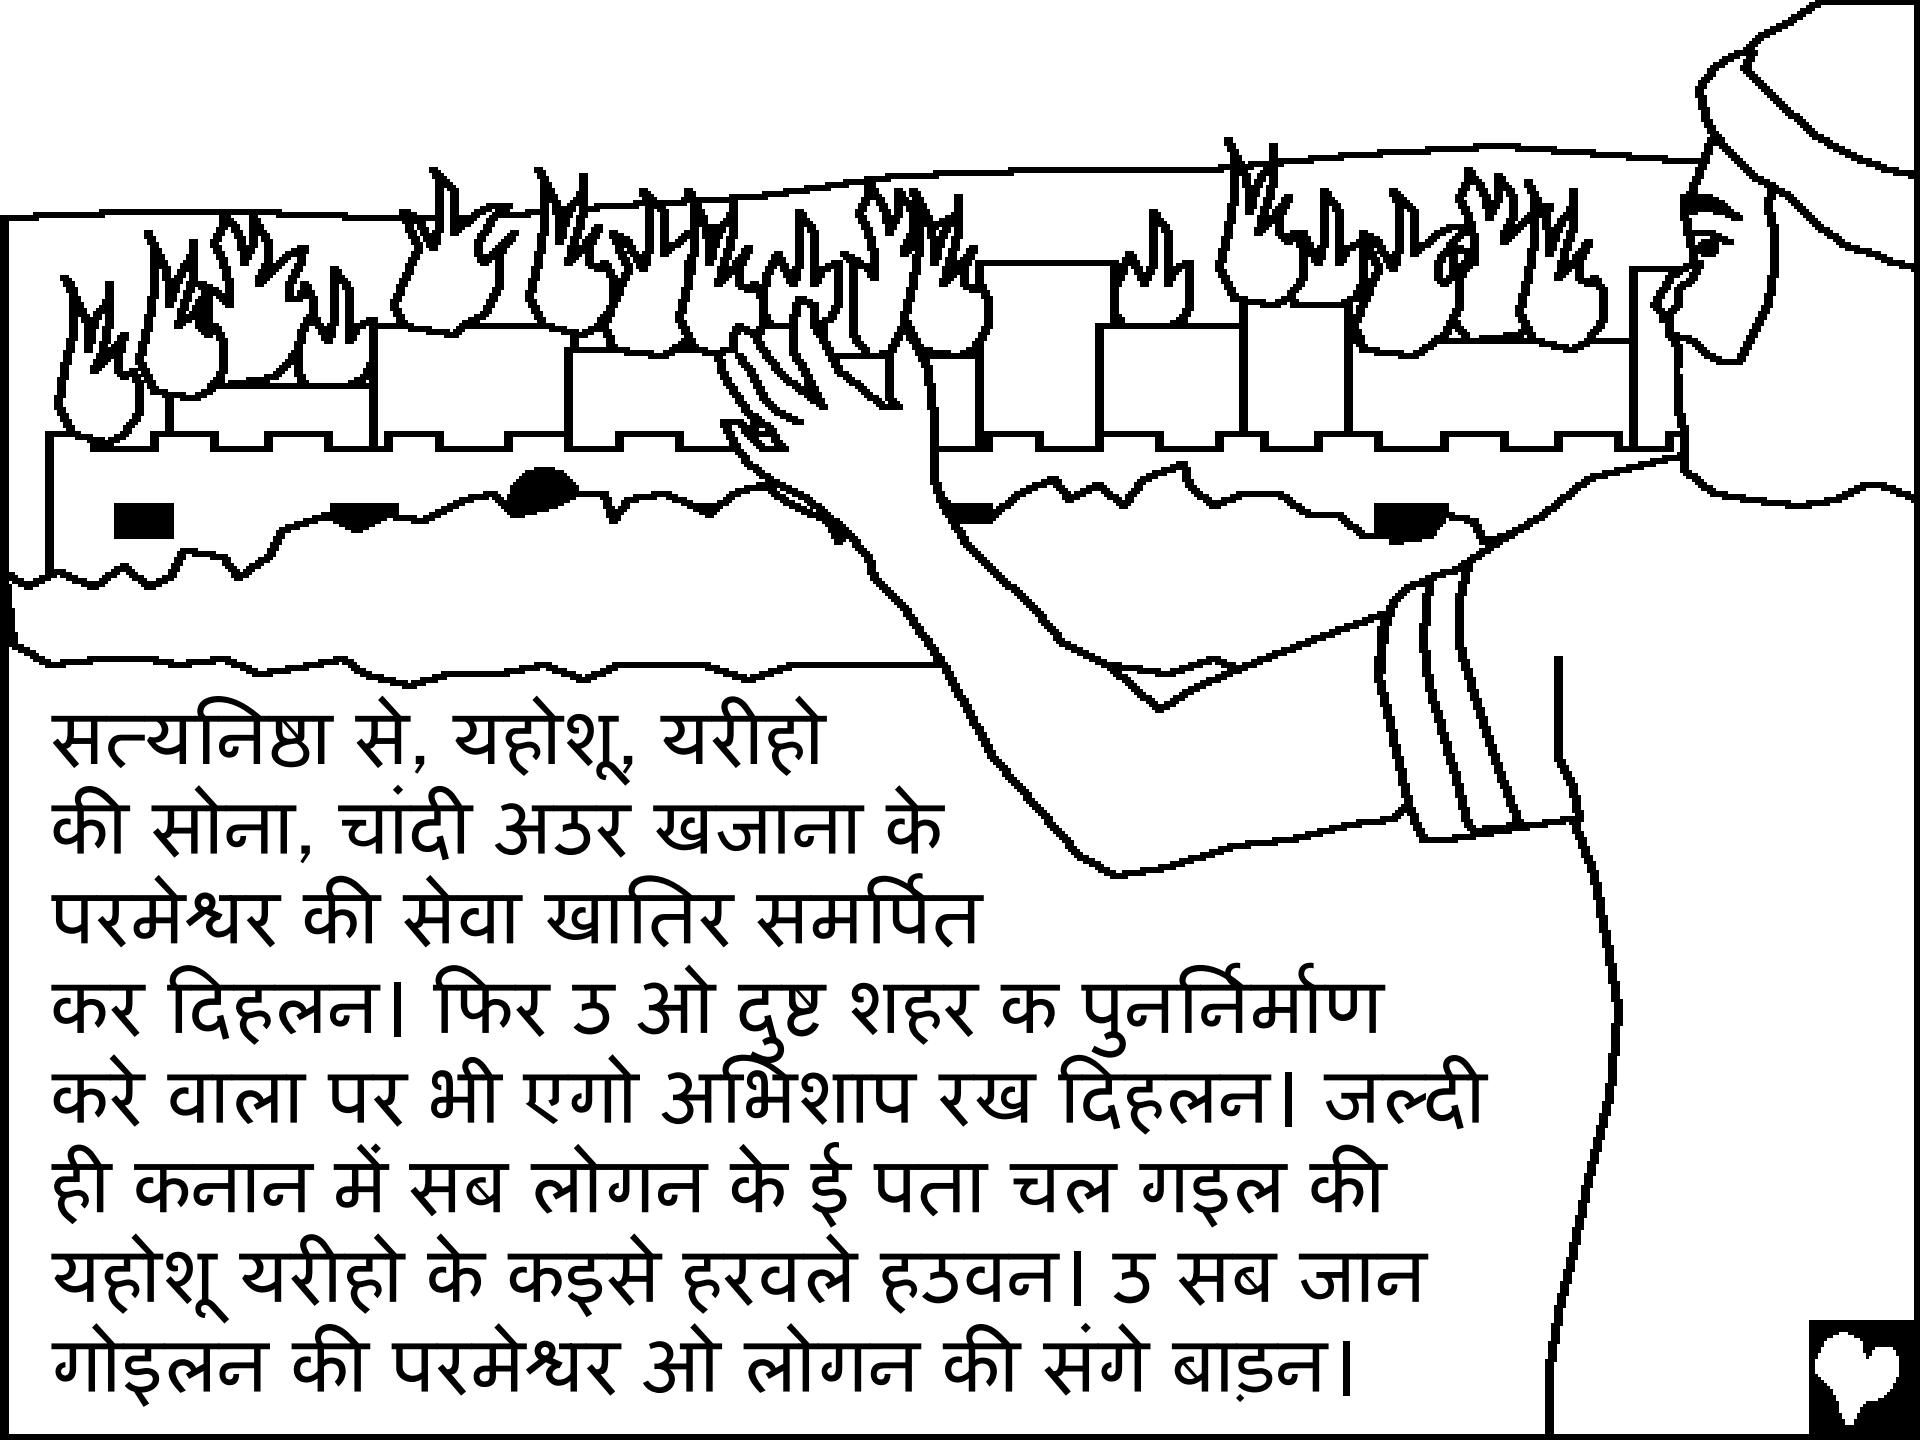 सत्यनिष्ठा से, यहोशू, यरीहो
की सोना, चांदी अठर खजाना के
परमेश्वर की सेवा खातिर समर्पित
कर दिहलन। फिर ठ ओ दुष्ट शहर क पुनर्निर्माण
करे वाला पर भी एगो अभिशाप रख दिहलन। जल्दी
ही कनान में सब लोगन के ई पता चल गइल की
यहोशू यरीहो के कइसे हरवले हठवन। ठ सब जान
गोइलन की परमेश्वर ओ लोगन की संगे बाड़न।